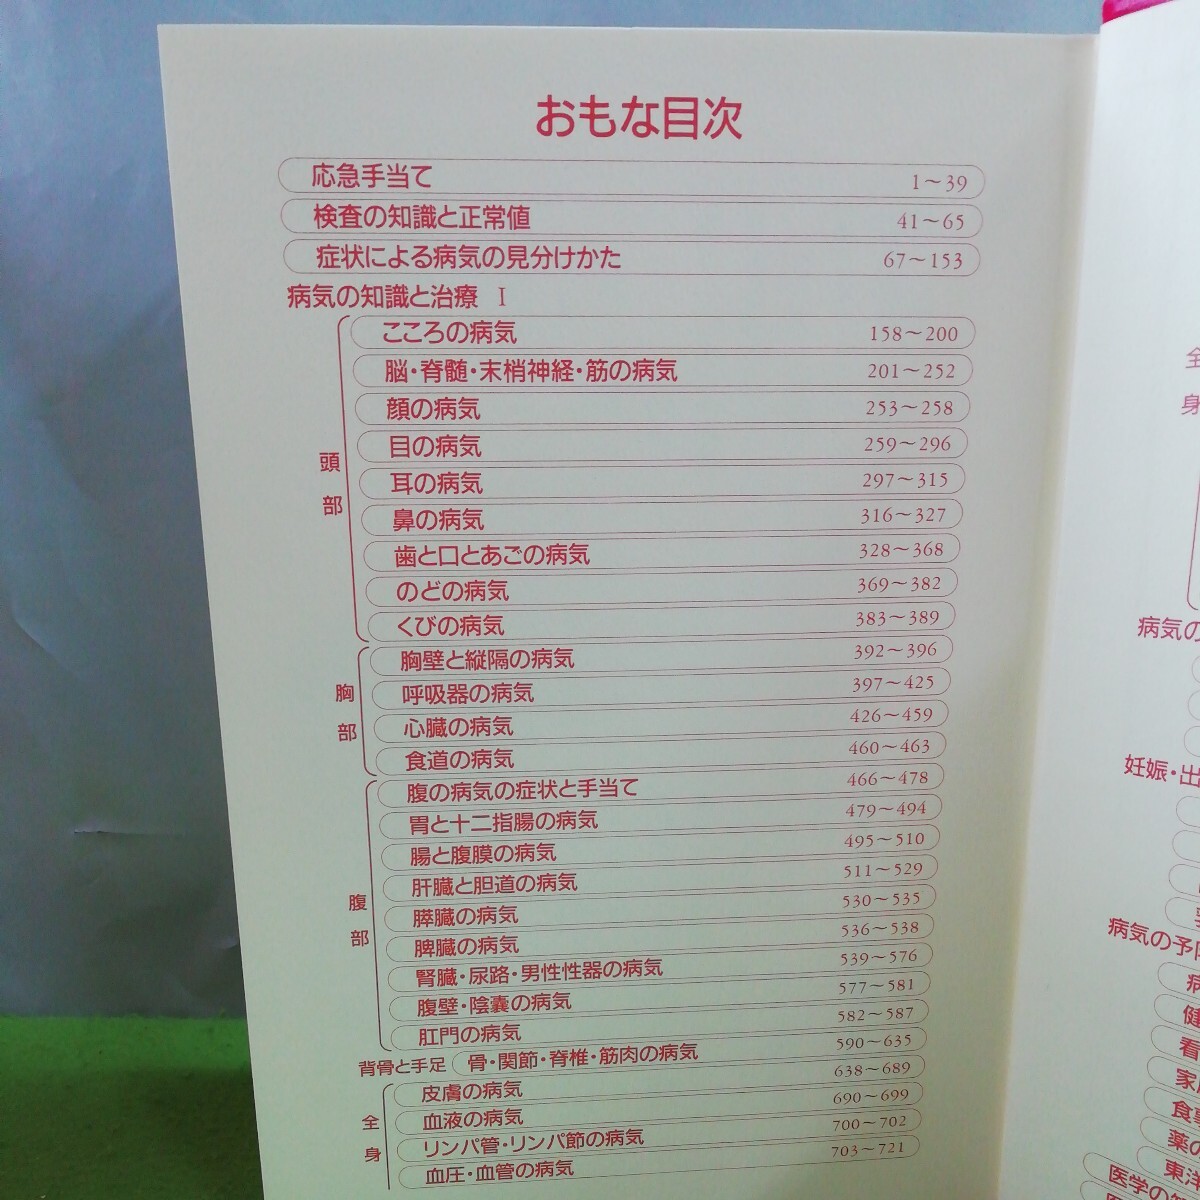 おもな目次
応急手当て 1～39
検査の知識と正常値 41～65
症状による病気の見分けかた 67～153
病気の知識と治療 Ⅰ
頭部
こころの病気 158～200
脳・脊髄・末梢神経・筋の病気 201～252
顔の病気 253～258
目の病気 259～296
耳の病気 297～315
鼻の病気 316～327
歯と口とあごの病気 328～368
のどの病気 369～382
くびの病気 383～389
胸部
胸壁と縦隔の病気 392～396
呼吸器の病気 397～425
心臓の病気 426～459
食道の病気 460～463
腹部
腹の病気の症状と手当て 466～478
胃と十二指腸の病気 479～494
腸と腹膜の病気 495～510
肝臓と胆道の病気 511～529
膵臓の病気 530～535
脾臓の病気 536～538
腎臓・尿路・男性性器の病気 539～576
腹壁・陰嚢の病気 577～581
肛門の病気 582～587
背骨と手足 骨・関節・脊椎・筋肉の病気 590～635
全身
皮膚の病気 638～689
血液の病気 690～699
リンパ管・リンパ節の病気 700～702
血圧・血管の病気 703～721
全
身
病気の
妊娠・出
病気の予
病
健
看
家
食
薬の
東洋
医学の